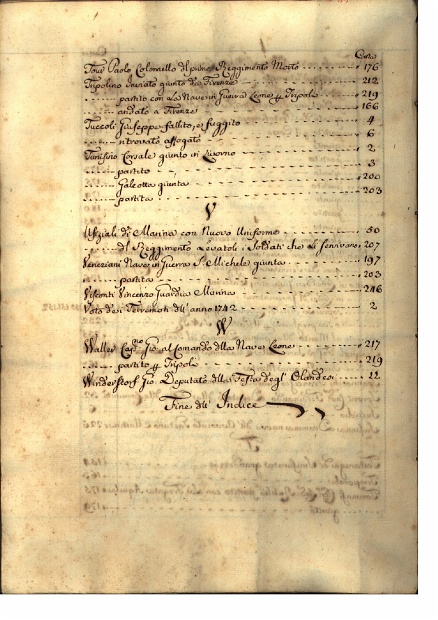 Carte
Tour Paolo Colonnello del primo Reggimento Morto 176
Tripolino Inviato giunto da Firenze 212
partito con la Nave in Guerra Leone p Tripoli 219
andato a Firenze 166
Tuccoli Giuseppe fallito, e fuggito 4
ritrovato affogato 6
Tunisino Corsale giunto in Livorno 2
partito 3
Galeotta giunta 200
partita 203
V
Ufiziali di Marina con Nuovo Uniforme 50
del Reggimento Levatoli i Soldati che li servivano 207
Veneziani Nave in Guerra S. Michele giunta 197
partita 203
Visconti Vincenzo Guardia Marina 246
Voto de i Terremoti dell'anno 1742 2
W
Waller Cap. Gio. al Comando della Nave Leone 217
partito p Tripoli 219
Winderstorf Gio. Deputato della Festa degl' Olandesi 22
Fine dell' Indice